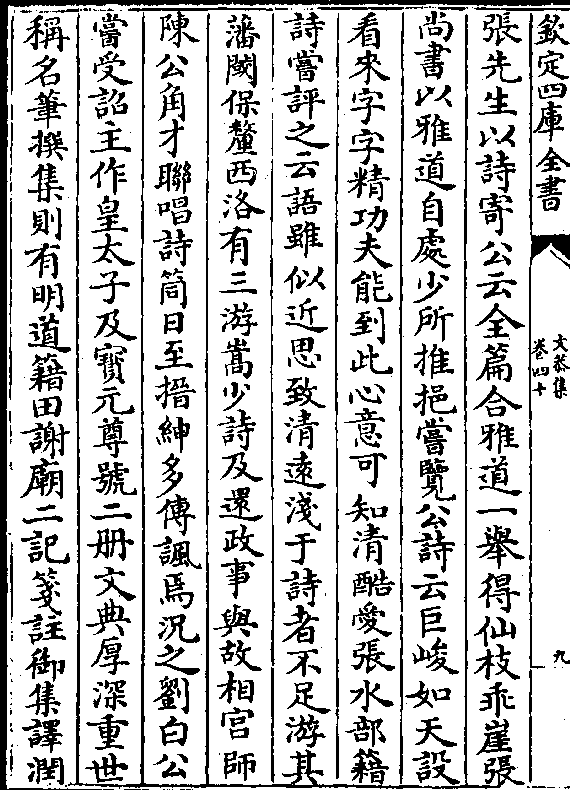 欽定四庫全書
文恭集
卷四十
九
張先生以詩寄公云全篇合雅道一舉得仙枝乖崖張
尚書以雅道自處少所推挹嘗覽公詩云巨峻如天設
看來字字精功夫能到此心意可知清酷愛張水部籍
詩嘗評之云語雖似近思致清遠淺于詩者不足游其
藩閾保釐西洛有三游嵩少詩及還政事與故相宫師
陳公角才聯唱詩筒日至搢紳多傳諷焉況之劉白公
嘗受詔主作皇太子及寳元尊號二册文典厚深重世
稱名筆撰集則有明道籍田謝廟二記箋註御集譯潤